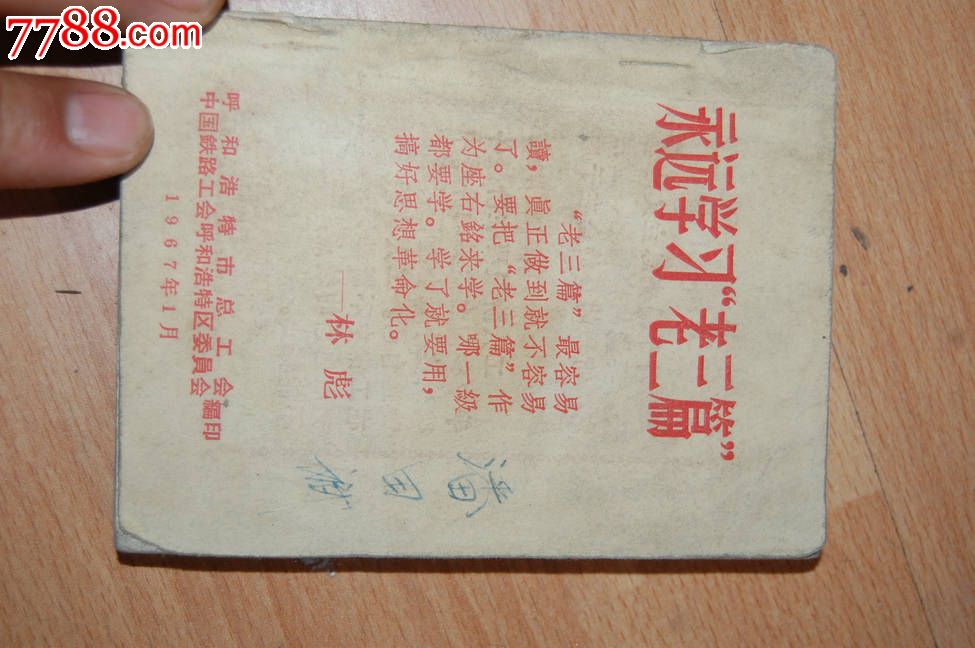 7788.com
永远学习“老三篇”
“老三篇”最容易
讀，眞正做到就不容易
了。要把“老三篇”作
为座右銘来学。哪一級
都要学。学了就要用，
搞好思想革命化。
——林彪
呼和浩特市总工会
中国鉄路工会呼和浩特区委員会編印
1967年1月
潘国